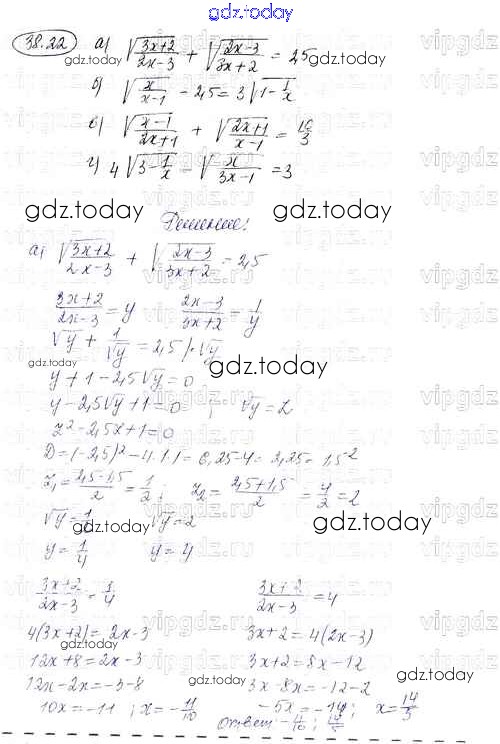 gdz.today
38.22 а) √(3x+2)/(2x-3) + √(2x-3)/(3x+2) = 2,5
б) √x/(x-1) - 2,5 = 3√1-1/x
в) √(x-1)/(2x+1) + √(2x+1)/(x-1) = 10/3
г) 4√3-1/x - √x/(3x-1) = 3
gdz.today gdz.today
Решение:
а) √(3x+2)/(2x-3) + √(2x-3)/(3x+2) = 2,5
(3x+2)/(2x-3) = y (2x-3)/(3x+2) = 1/y
√y + 1/√y = 2,5 /·√y
gdz.today gdz.today
y + 1 - 2,5√y = 0
y - 2,5√y + 1 = 0 ; √y = z
z² - 2,5x + 1 = 0
D = (-2,5)² - 4·1·1 = 6,25 - 4 = 2,25 = 1,5²
z₁ = (2,5-1,5)/2 = 1/2 ; z₂ = (2,5+1,5)/2 = 4/2 = 2
√y = 1/2 √y = 2
gdz.today gdz.today
y = 1/4 y = 4
(3x+2)/(2x-3) = 1/4 (3x+2)/(2x-3) = 4
4(3x+2) = 2x-3 3x+2 = 4(2x-3)
12x+8 = 2x-3 3x+2 = 8x-12
gdz.today gdz.today
12x-2x = -3-8 3x-8x = -12-2
10x = -11 ; x = -11/10 -5x = -14 ; x = 14/5
Ответ: -11/10 ; 14/5